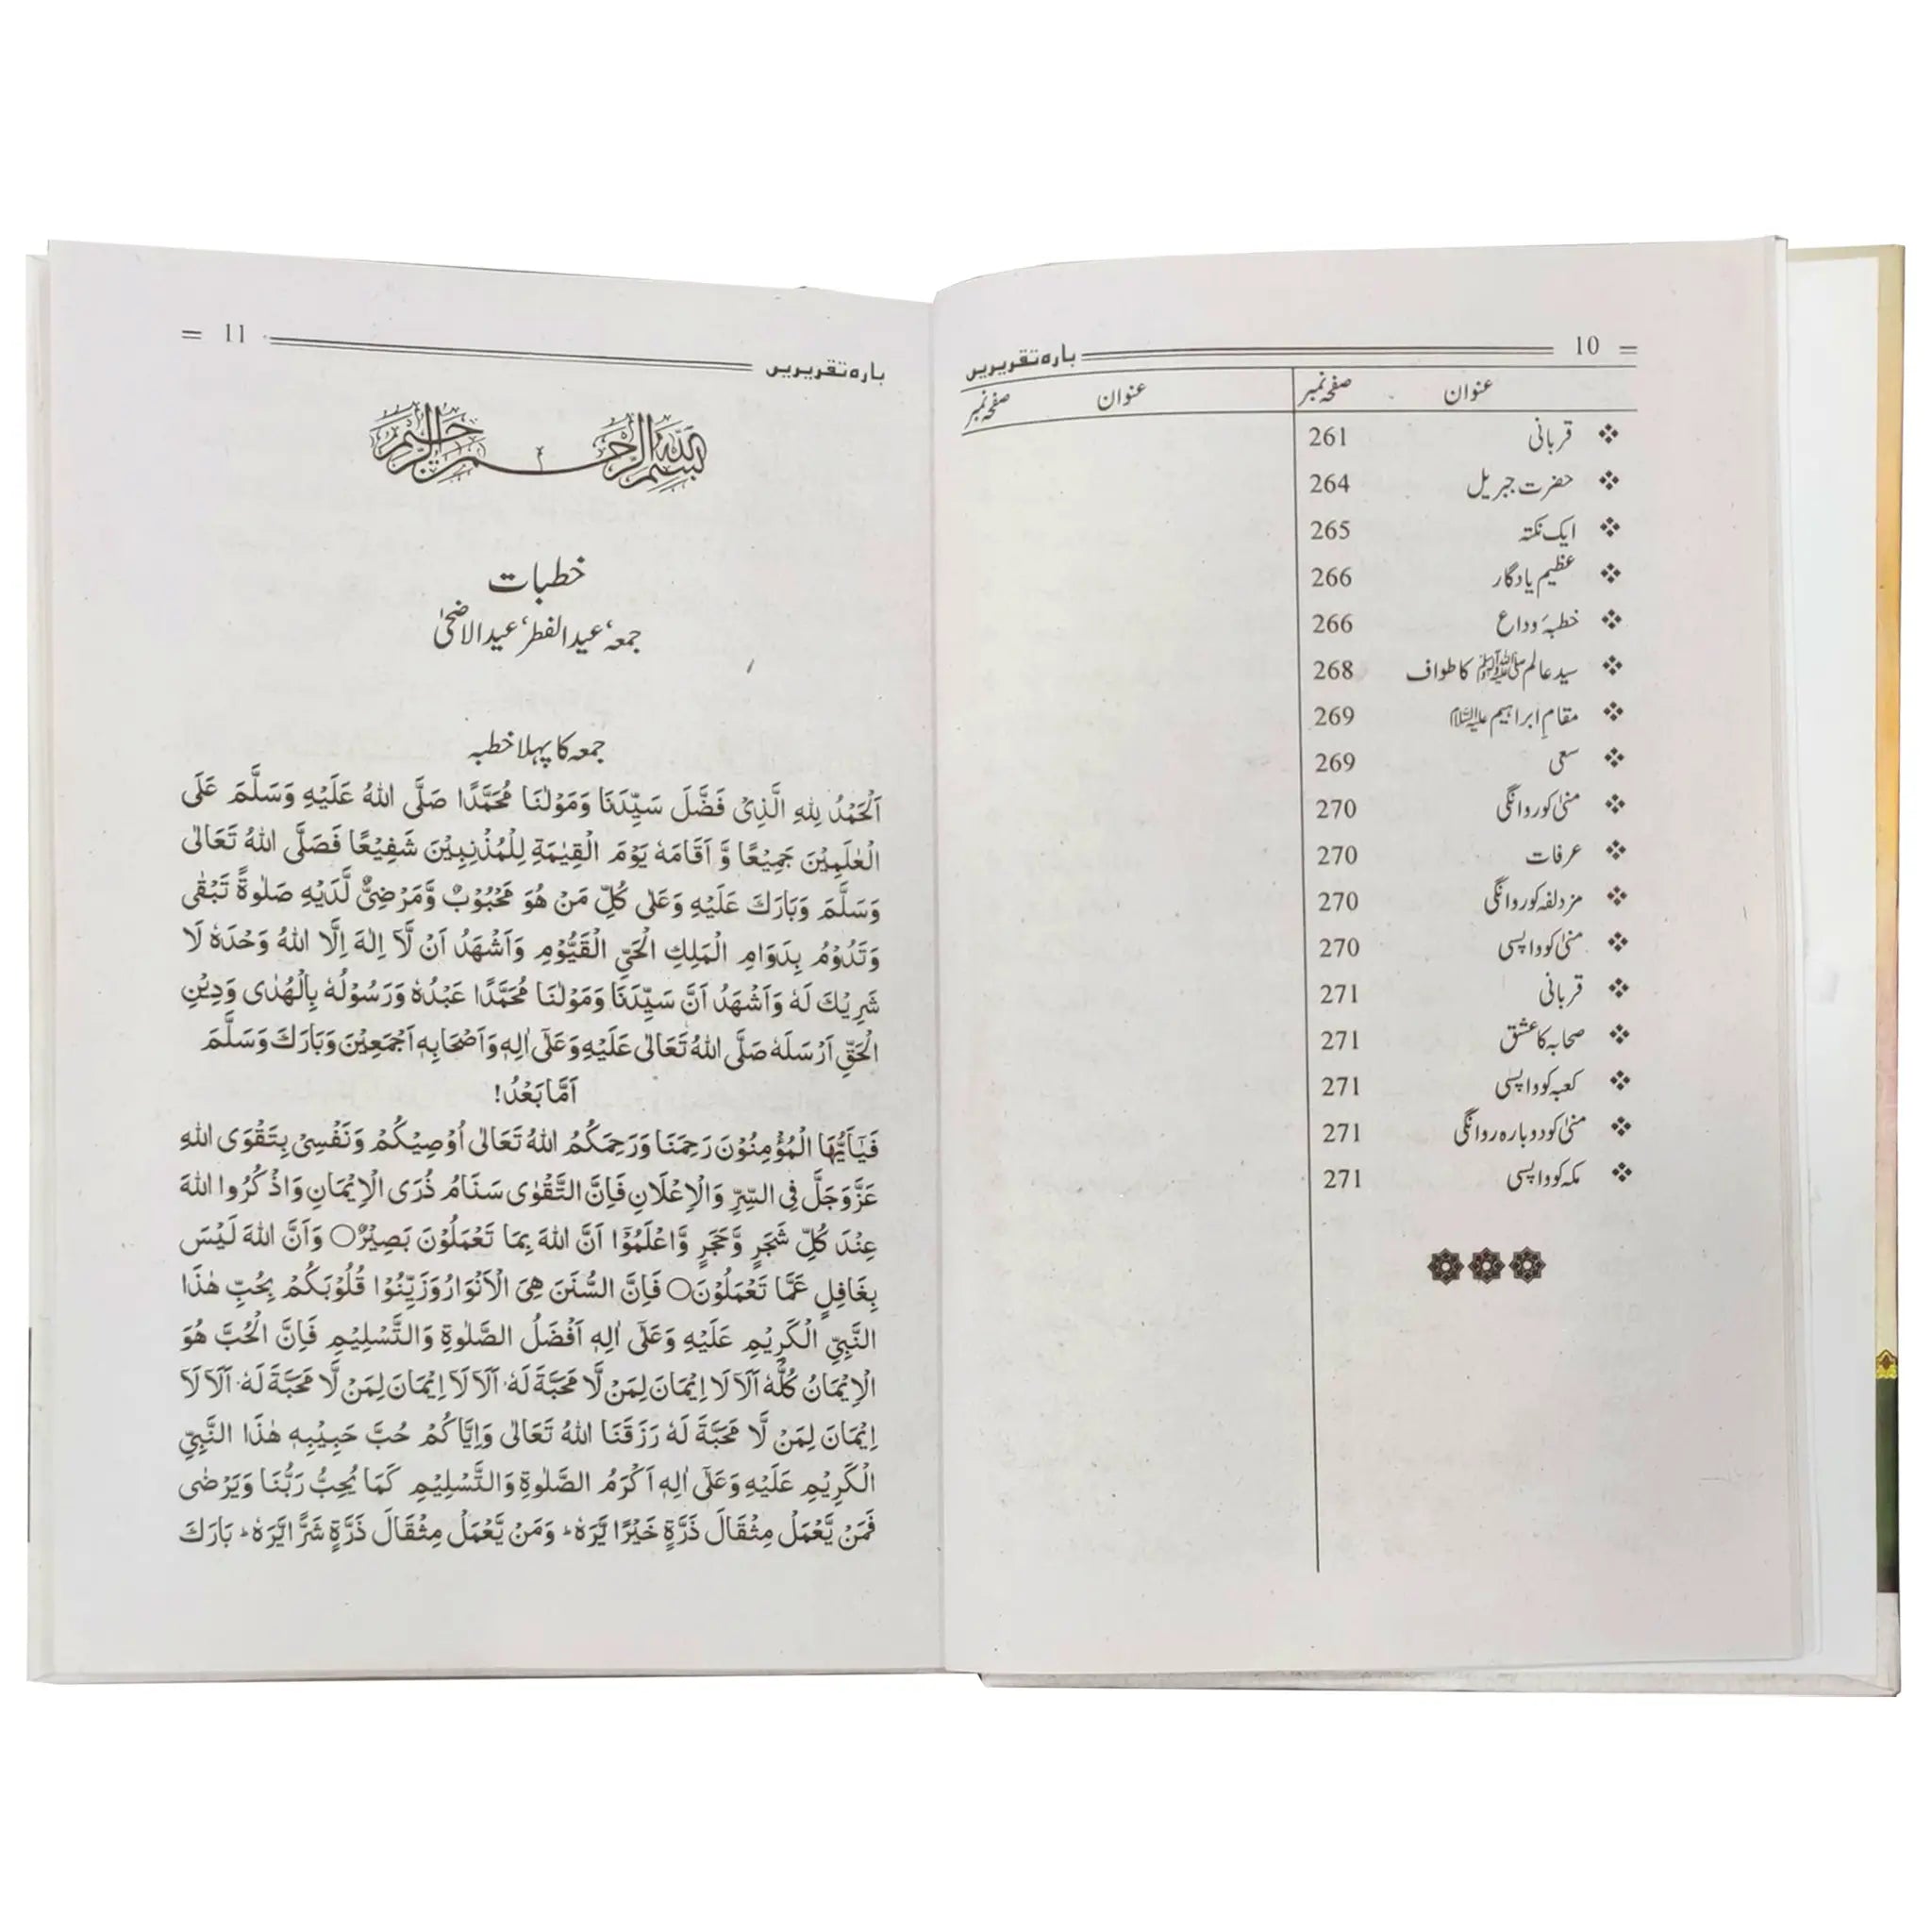 10 بارہ تقریریں
عنوان صفحہ نمبر عنوان صفحہ نمبر
قربانی 261
حضرت جبریل 264
ایک نکتہ 265
عظیم یادگار 266
خطبۂ وداع 266
سید عالم ﷺ کا طواف 268
مقامِ ابراہیم علیہ السلام 269
سعی 269
منیٰ کو روانگی 270
عرفات 270
مزدلفہ کو روانگی 270
منیٰ کو واپسی 270
قربانی 271
صحابہ کا عشق 271
کعبہ کو واپسی 271
منیٰ کو دوبارہ روانگی 271
مکہ کو واپسی 271
بارہ تقریریں 11
بسم اللہ الرحمٰن الرحیم
خطبات
جمعہ، عید الفطر، عید الاضحیٰ
جمعہ کا پہلا خطبہ
اَلْحَمْدُ لِلّٰهِ الَّذِیْ فَضَّلَ سَیِّدَنَا وَمَوْلٰنَا مُحَمَّدًا صَلَّی اللّٰهُ عَلَیْهِ وَسَلَّمَ عَلَی
الْعٰلَمِیْنَ جَمِیْعًا وَّ اَقَامَهٗ یَوْمَ الْقِیٰمَةِ لِلْمُذْنِبِیْنَ شَفِیْعًا فَصَلَّی اللّٰهُ تَعَالٰی
وَسَلَّمَ وَبَارَكَ عَلَیْهِ وَعَلٰی كُلِّ مَنْ هُوَ مَحْبُوْبٌ وَّمَرْضِیٌّ لَّدَیْهِ صَلٰوةً تَبْقٰی
وَتَدُوْمُ بِدَوَامِ الْمَلِكِ الْحَیِّ الْقَیُّوْمِ وَاَشْهَدُ اَنْ لَّآ اِلٰهَ اِلَّا اللّٰهُ وَحْدَهٗ لَا
شَرِیْكَ لَهٗ وَاَشْهَدُ اَنَّ سَیِّدَنَا وَمَوْلٰنَا مُحَمَّدًا عَبْدُهٗ وَرَسُوْلُهٗ بِالْهُدٰی وَدِیْنِ
الْحَقِّ اَرْسَلَهٗ صَلَّی اللّٰهُ تَعَالٰی عَلَیْهِ وَعَلٰٓی اٰلِهٖ وَاَصْحَابِهٖ اَجْمَعِیْنَ وَبَارَكَ وَسَلَّمَ
اَمَّا بَعْدُ!
فَیٰٓاَیُّهَا الْمُؤْمِنُوْنَ رَحِمَنَا وَرَحِمَكُمُ اللّٰهُ تَعَالٰی اُوْصِیْكُمْ وَنَفْسِیْ بِتَقْوَی اللّٰهِ
عَزَّوَجَلَّ فِی السِّرِّ وَالْاِعْلَانِ فَاِنَّ التَّقْوٰی سَنَامُ ذُرَی الْاِیْمَانِ وَاذْكُرُوا اللّٰهَ
عِنْدَ كُلِّ شَجَرٍ وَّحَجَرٍ وَّاعْلَمُوْٓا اَنَّ اللّٰهَ بِمَا تَعْمَلُوْنَ بَصِیْرٌ○ وَاَنَّ اللّٰهَ لَیْسَ
بِغَافِلٍ عَمَّا تَعْمَلُوْنَ○ فَاِنَّ السُّنَنَ هِیَ الْاَنْوَارُ وَزَیِّنُوْا قُلُوْبَكُمْ بِحُبِّ هٰذَا
النَّبِیِّ الْكَرِیْمِ عَلَیْهِ وَعَلٰٓی اٰلِهٖ اَفْضَلُ الصَّلٰوةِ وَالتَّسْلِیْمِ فَاِنَّ الْحُبَّ هُوَ
الْاِیْمَانُ كُلُّهٗ اَلَآ لَا اِیْمَانَ لِمَنْ لَّا مَحَبَّةَ لَهٗ۔ اَلَآ لَا اِیْمَانَ لِمَنْ لَّا مَحَبَّةَ لَهٗ۔ اَلَآ لَآ
اِیْمَانَ لِمَنْ لَّا مَحَبَّةَ لَهٗ رَزَقَنَا اللّٰهُ تَعَالٰی وَاِیَّاكُمْ حُبَّ حَبِیْبِهٖ هٰذَا النَّبِیِّ
الْكَرِیْمِ عَلَیْهِ وَعَلٰٓی اٰلِهٖ اَكْرَمُ الصَّلٰوةِ وَالتَّسْلِیْمِ كَمَا یُحِبُّ رَبُّنَا وَیَرْضٰی
فَمَنْ یَّعْمَلْ مِثْقَالَ ذَرَّةٍ خَیْرًا یَّرَهٗ۔ وَمَنْ یَّعْمَلْ مِثْقَالَ ذَرَّةٍ شَرًّا یَّرَهٗ۔ بَارَكَ